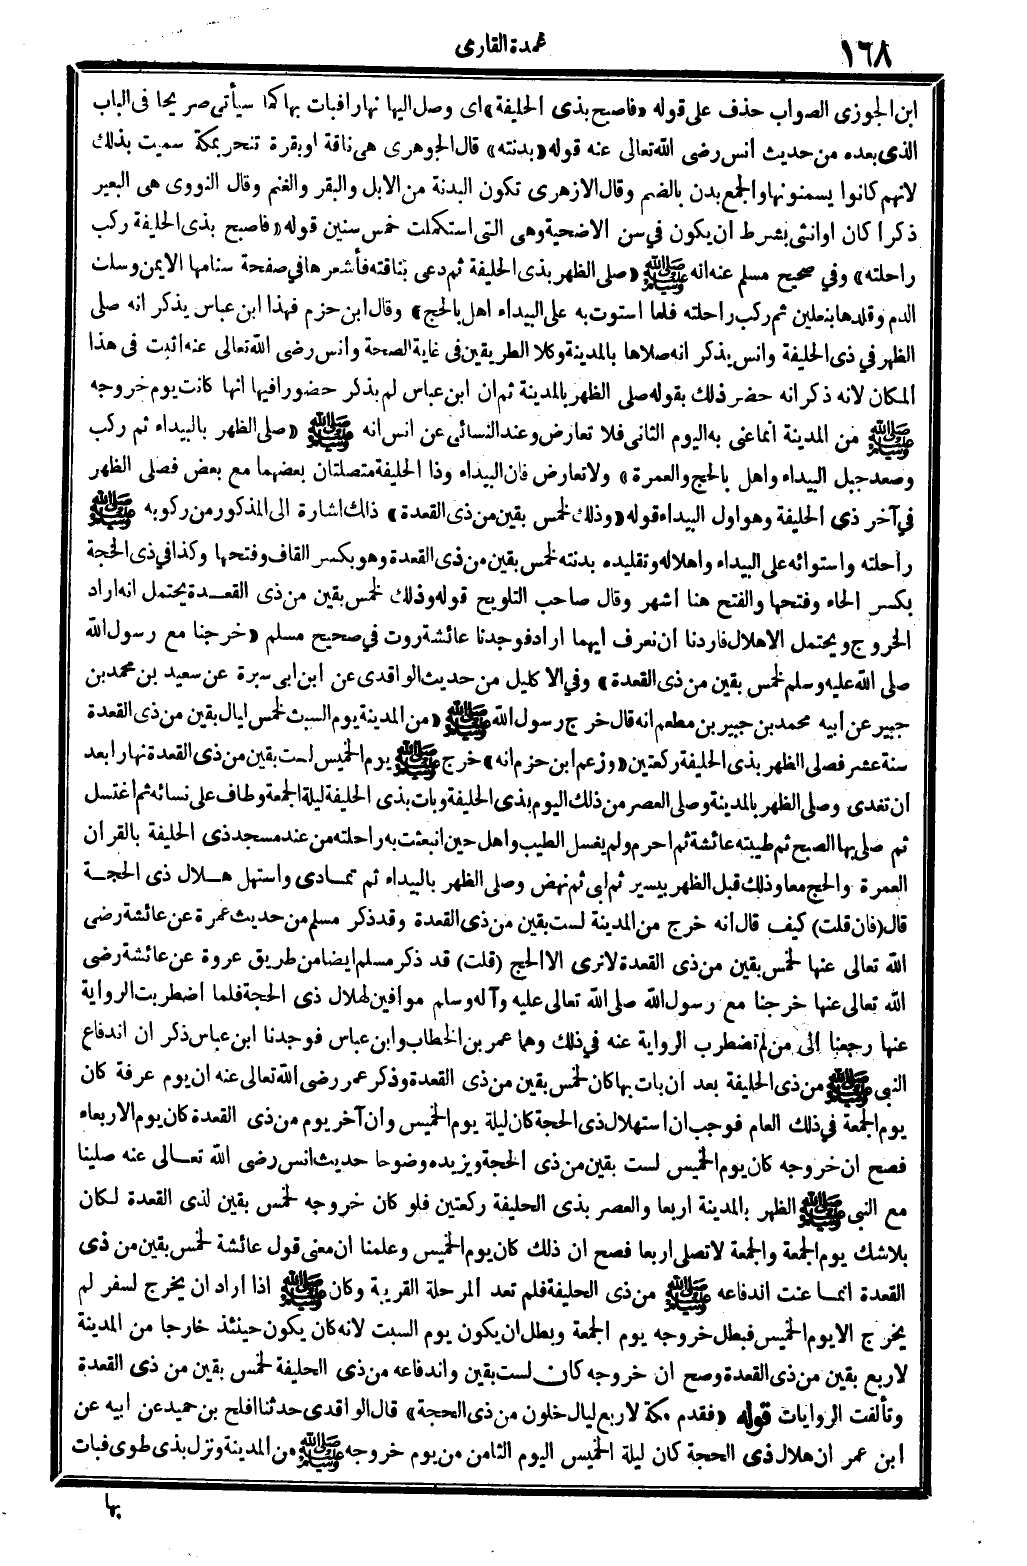 ١٦٨
عمدة القارى
ابن الجوزى الصواب حذف على قوله «فاصبح بذى الحليفة» اى وصل اليها نهارا فبات بها كما سيأتى صريحا فى الباب
الذى بعده من حديث أنس رضى الله تعالى عنه قوله «بدنته» قال الجوهرى هى ناقة او بقرة تنحر بمكة سميت بذلك
لانهم كانوا يسمنونها والجمع بدن بالضم وقال الازهرى تكون البدنة من الابل والبقر والغنم وقال النووى هى البعير
ذكرا كان او انثى بشرط ان يكون في سن الاضحية وهى التى استكملت خمس سنين قوله «فاصبح بذى الحليفة ركب
راحلته» وفي صحيح مسلم عنه انه ﷺ «صلى الظهر بذى الحليفة ثم دعى بناقته فأشعرها في صفحة سنامها الايمن وسلت
الدم وقلدها بنعلين ثم ركب راحلته فلما استوت به على البيداء اهل بالحج» وقال ابن حزم فهذا ابن عباس يذكر انه صلى
الظهر في ذى الحليفة وانس يذكر انه صلاها بالمدينة وكلا الطريقين فى غاية الصحة وأنس رضى الله تعالى عنه اثبت فى هذا
المكان لانه ذكر انه حضر ذلك بقوله صلى الظهر بالمدينة ثم ان ابن عباس لم يذكر حضورا فيها انها كانت يوم خروجه
ﷺ من المدينة انما عنى به اليوم الثانى فلا تعارض وعند النسائى عن انس انه ﷺ «صلى الظهر بالبيداء ثم ركب
وصعد جبل البيداء واهل بالحج والعمرة» ولا تعارض فان البيداء وذا الحليفة متصلتان بعضهما مع بعض فصلى الظهر
في آخر ذي الحليفة وهو اول البيداء قوله «وذلك لخمس بقين من ذى القعدة» ذلك اشارة الى المذكور من ركوبه ﷺ
راحلته واستوائه على البيداء واهلاله وتقليده بدنته لخمس بقين من ذى القعدة وهو بكسر القاف وفتحها وكذا في ذى الحجة
بكسر الحاء وفتحها والفتح هنا اشهر وقال صاحب التلويح قوله وذلك لخمس بقين من ذى القعدة يحتمل انه اراد
الخروج ويحتمل الاهلال فاردنا ان نعرف ايهما اراد فوجدنا عائشة روت في صحيح مسلم «خرجنا مع رسول الله
صلى الله عليه وسلم لخمس بقين من ذى القعدة» وفي الاكليل من حديث الواقدى عن ابن ابى سبرة عن سعيد بن محمد بن
جبير عن أبيه محمد بن جبير بن مطعم انه قال خرج رسول الله ﷺ «من المدينة يوم السبت لخمس ليال بقين من ذى القعدة
سنة عشر فصلى الظهر بذى الحليفة ركعتين «وزعم ابن حزم انه» خرج ﷺ يوم الخميس لست بقين من ذى القعدة نهارا بعد
ان تغدى وصلى الظهر بالمدينة وصلى العصر من ذلك اليوم بذى الحليفة وبات بذى الحليفة ليلة الجمعة وطاف على نسائه ثم اغتسل
ثم صلى بها الصبح ثم طيبته عائشة ثم احرم ولم يغسل الطيب واهل حين انبعثت به راحلته من عند مسجد ذى الحليفة بالقران
العمرة والحج معا وذلك قبل الظهر بيسير ثم لبى ثم نهض وصلى الظهر بالبيداء ثم تمادى واستهل هلال ذى الحجة
قال (فان قلت) كيف قال انه خرج من المدينة لست بقين من ذى القعدة وقد ذكر مسلم من حديث عمرة عن عائشة رضى
الله تعالى عنها لخمس بقين من ذى القعدة لا نرى الا الحج (قلت) قد ذكر مسلم ايضا من طريق عروة عن عائشة رضى
الله تعالى عنها خرجنا مع رسول الله صلى الله تعالى عليه وآله وسلم موافين لهلال ذى الحجة فلما اضطربت الرواية
عنها رجعنا الى من لم تضطرب الرواية عنه في ذلك وهما عمر بن الخطاب وابن عباس فوجدنا ابن عباس ذكر ان اندفاع
النبى ﷺ من ذى الحليفة بعد ان بات بها كان لخمس بقين من ذى القعدة وذكر عمر رضى الله تعالى عنه ان يوم عرفة كان
يوم الجمعة في ذلك العام فوجب ان استهلال ذى الحجة كان ليلة يوم الخميس وأن آخر يوم من ذى القعدة كان يوم الاربعاء
فصح ان خروجه كان يوم الخميس لست بقين من ذى الحجة ويزيده وضوحا حديث انس رضى الله تعالى عنه صلينا
مع النبى ﷺ الظهر بالمدينة اربعا والعصر بذى الحليفة ركعتين فلو كان خروجه لخمس بقين لذى القعدة لكان
بلاشك يوم الجمعة والجمعة لا تصلى اربعا فصح ان ذلك كان يوم الخميس وعلمنا ان معنى قول عائشة لخمس بقين من ذى
القعدة انما عنت اندفاعه ﷺ من ذى الحليفة فلم تعد المرحلة القريبة وكان ﷺ اذا اراد ان يخرج لسفر لم
يخرج الا يوم الخميس فبطل خروجه يوم الجمعة وبطل ان يكون يوم السبت لانه كان يكون حينئذ خارجا من المدينة
لاربع بقين من ذى القعدة وصح ان خروجه كان لست بقين واندفاعه من ذى الحليفة لخمس بقين من ذى القعدة
وتألفت الروايات قوله «فقدم مكة لاربع ليال خلون من ذى الحجة» قال الواقدى حدثنا افلح بن حميد عن ابيه عن
ابن عمر ان هلال ذى الحجة كان ليلة الخميس اليوم الثامن من يوم خروجه ﷺ من المدينة ونزل بذى طوى فبات
بها